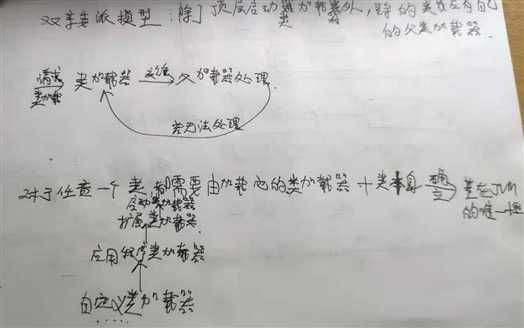 双亲委派模型：除了顶层启动类加载器外，其余的类都应有自己
的父类加载器
请求 类加载器 委派 父加载器处理
类加载
若无法处理
对于任意一个类，都需要由加载它的类加载器＋类本身 确立 类在JVM
的唯一性
启动类加载器
扩展类加载器
应用程序类加载器
自定义类加载器
……